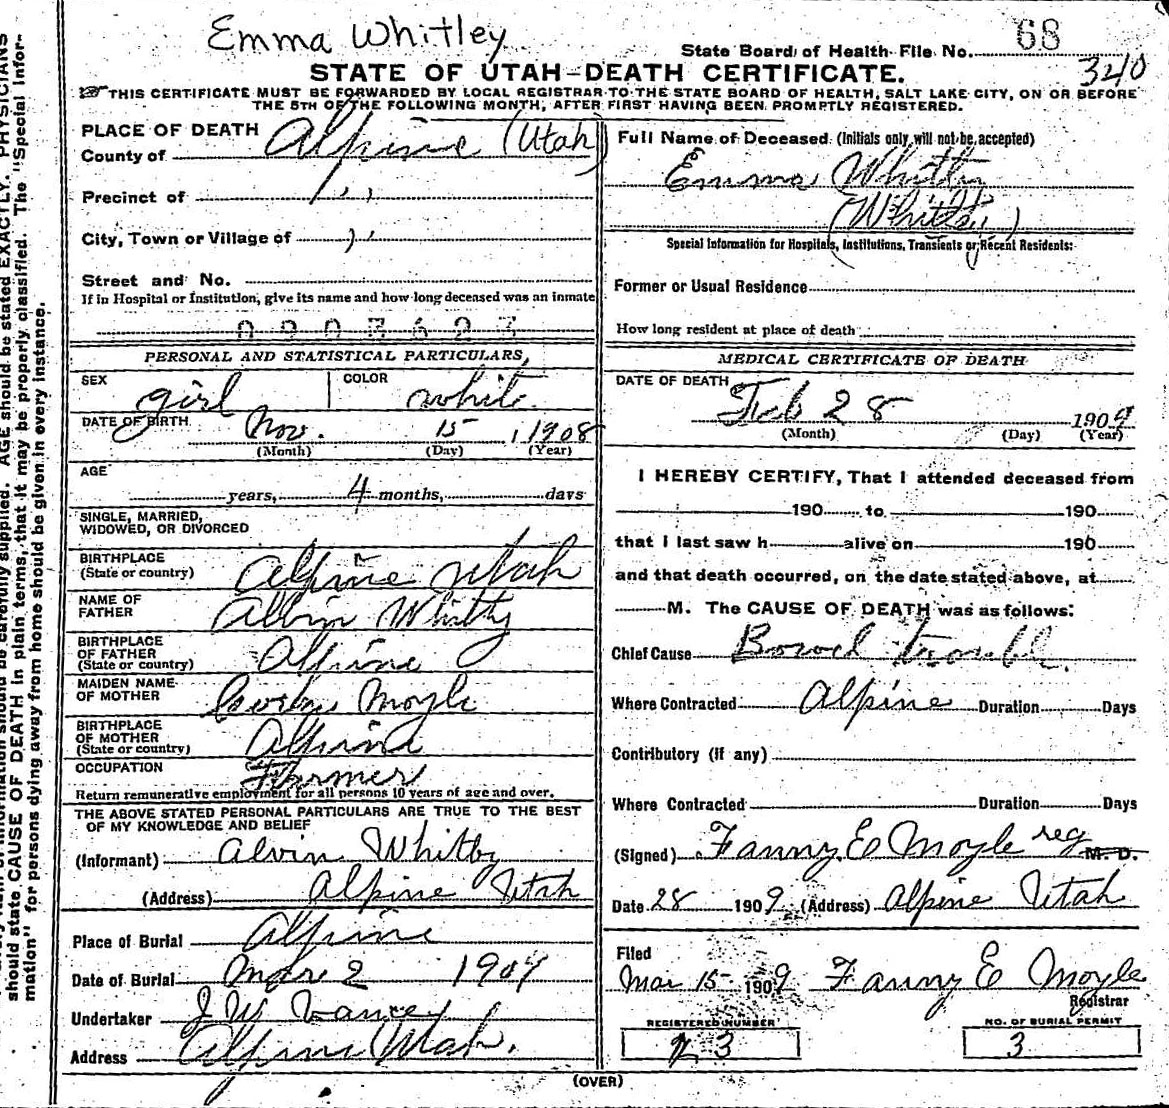 Emma Whitley
State Board of Health File No. 68
340
STATE OF UTAH-DEATH CERTIFICATE.
THIS CERTIFICATE MUST BE FORWARDED BY LOCAL REGISTRAR TO THE STATE BOARD OF HEALTH, SALT LAKE CITY, ON OR BEFORE
THE 5TH OF THE FOLLOWING MONTH, AFTER FIRST HAVING BEEN PROMPTLY REGISTERED.
PLACE OF DEATH
County of Alpine (Utah)
Precinct of " "
City, Town or Village of " "
Street and No.
If in Hospital or Institution, give its name and how long deceased was an inmate
0903623
PERSONAL AND STATISTICAL PARTICULARS,
SEX girl COLOR white
DATE OF BIRTH Nov. 15, 1908
(Month) (Day) (Year)
AGE
years, 4 months, days
SINGLE, MARRIED,
WIDOWED, OR DIVORCED
BIRTHPLACE
(State or country) Alpine Utah
NAME OF
FATHER Albin Whitby
BIRTHPLACE
OF FATHER
(State or country) Alpine
MAIDEN NAME
OF MOTHER Moyle
BIRTHPLACE
OF MOTHER
(State or country) Alpine
OCCUPATION Farmer
Return remunerative employment for all persons 10 years of age and over.
THE ABOVE STATED PERSONAL PARTICULARS ARE TRUE TO THE BEST
OF MY KNOWLEDGE AND BELIEF
(Informant) Alvin Whitby
(Address) Alpine Utah
Place of Burial Alpine
Date of Burial Mar 2 1909
Undertaker J W Vance
Address Alpine Utah.
Full Name of Deceased (Initials only will not be accepted)
Emma Whitby
(Whitley)
Special Information for Hospitals, Institutions, Transients or Recent Residents:
Former or Usual Residence
How long resident at place of death
MEDICAL CERTIFICATE OF DEATH
DATE OF DEATH Feb 28 1909
(Month) (Day) (Year)
I HEREBY CERTIFY, That I attended deceased from
190 to 190
that I last saw h alive on 190
and that death occurred, on the date stated above, at
M. The CAUSE OF DEATH was as follows:
Chief Cause Bowel trouble
Where Contracted Alpine Duration Days
Contributory (if any)
Where Contracted Duration Days
(Signed) Fanny E Moyle reg M. D.
Date 28 1909 (Address) Alpine Utah
Filed
Mar 15 1909 Fanny E Moyle
Registrar
REGISTERED NUMBER
3
NO. OF BURIAL PERMIT
3
(OVER)
AGE should be stated EXACTLY. PHYSICIANS
should state CAUSE OF DEATH in plain terms, that it may be properly classified. The "Special Infor-
mation" for persons dying away from home should be given in every instance.